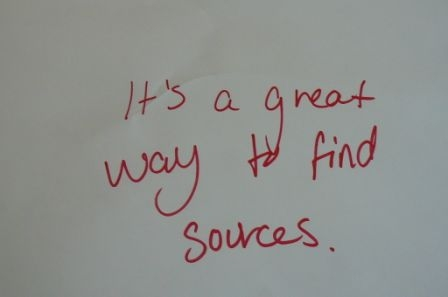 It's a great
way to find
sources.